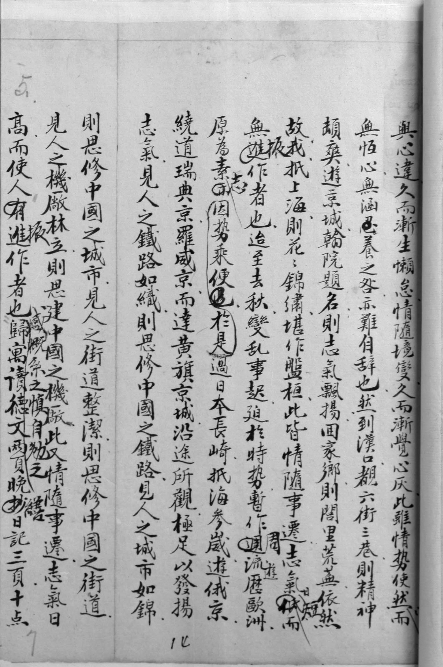 與心違久而漸生懶怠情隨境變久而漸覺心灰此雖情勢使然而
無恆心無涵養之咎亦難自辭也然到漢口觀六街三巷則精神
頡爽遊京城翰院題名則志氣飄揚回家鄉則閭里荒蕪依然
故我抵上海則花花錦繡堪作盤桓此皆情隨事遷志氣日短而
無振作者也迨至去秋變乱事起迫於時勢暫作周遊流歷歐洲
原為素志因勢乘便於是過日本長崎抵海參崴遊俄京
繞道瑞典京羅威京而達黃旗京城沿途所觀極足以發揚
志氣見人之鐵路如織則思修中國之鐵路見人之城市如錦
則思修中國之城市見人之街道整潔則思修中國之街道
見人之機廠林立則思建中國之機廠此又情隨事遷志氣日
高而使人有振作者也感慨係之慎自勉之歸寓讀德文兩頁晚抄日記三頁十点
14
7